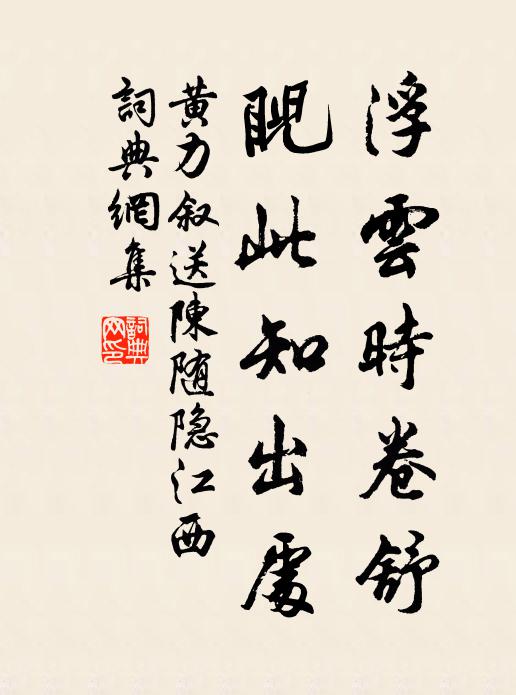 浮雲時卷舒
睨此知出處
黄力叙送陳随隐江西
詞典網集
詞典网印